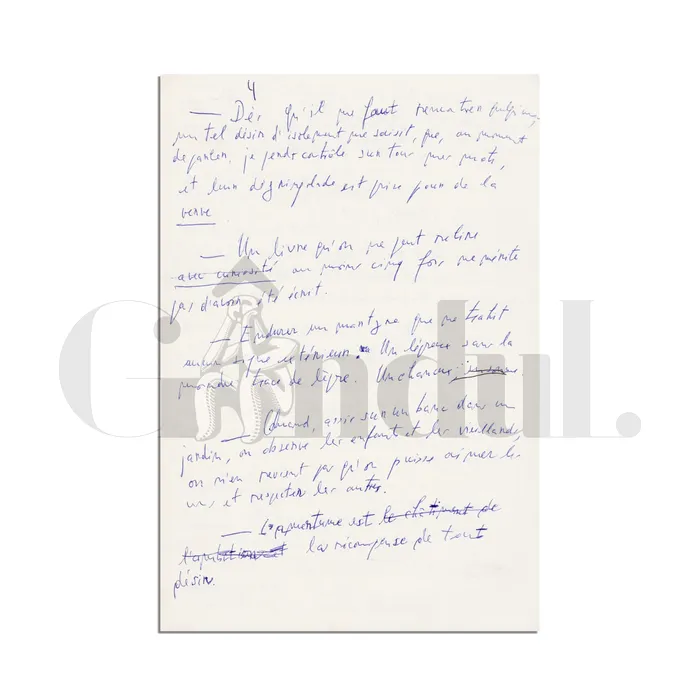 4
— Dès qu'il me faut rencontrer quelqu'un,
un tel désir d'isolement me saisit, que, au moment
de parler, je perds contrôle sur tous mes mots,
et leur dégringolade est prise pour de la
verve
— Un livre qu'on ne peut relire
avec curiosité au moins cinq fois ne mérite
pas d'avoir été écrit.
— Endurer un martyre que ne trahit
aucun signe extérieur. Un lépreux sans la
moindre trace de lèpre. Un chanceux
— Quand, assis sur un banc dans un
jardin, on observe les enfants et les vieillards,
on n'en revient pas qu'on puisse aimer les
uns, et respecter les autres.
— L'amertume est le châtiment de
la récompense de tout
désir.
Gndul.